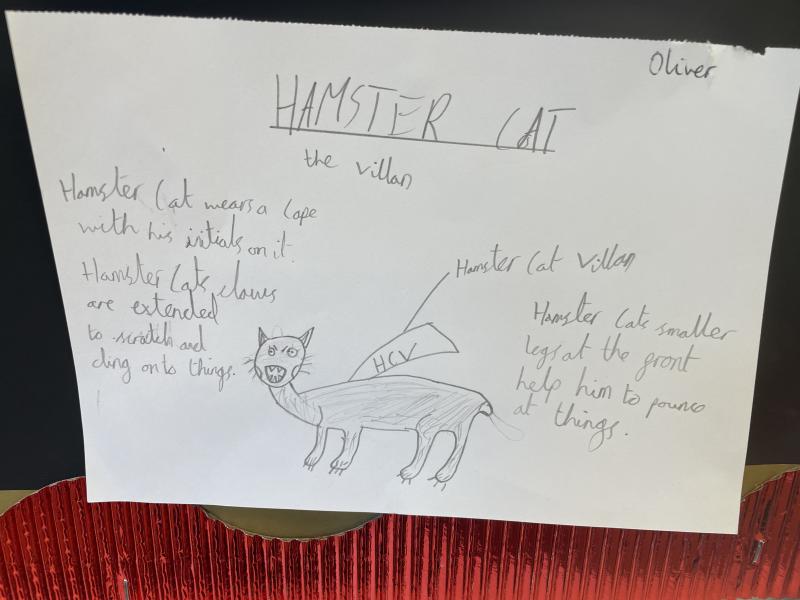 Oliver
HAMSTER CAT
the villan
Hamster Cat wears a Cape
with his initials on it.
Hamster Cats claws
are extended
to scratch and
cling onto things.
Hamster Cat Villan
HCV
Hamster Cats smaller
legs at the front
help him to pounce
at things.